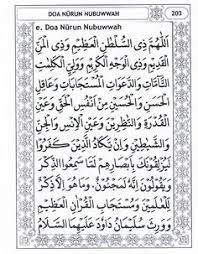 DOA NÛRUN NUBUWWAH
203
e. Doa Nûrun Nubuwwah
اَللّٰهُمَّ ذِى السُّلْطٰنِ الْعَظِيْمِ وَذِى الْمَنِّ
الْقَدِيْمِ وَذِى الْوَجْهِ الْكَرِيْمِ وَوَلِيِّ الْكَلِمٰتِ
التَّآمَّاتِ وَالدَّعَوَاتِ الْمُسْتَجَابَاتِ وَعَاقِلِ
الْحَسَنِ وَالْحُسَيْنِ مِنْ اَنْفُسِ الْحَقِّ وَعَيْنِ
الْقُدْرَةِ وَالنَّاظِرِيْنَ وَعَيْنِ الْاِنْسِ وَالْجِنِّ
وَالشَّيٰطِيْنِ وَاِنْ يَّكَادُ الَّذِيْنَ كَفَرُوْا
لَيُزْلِقُوْنَكَ بِاَبْصَارِهِمْ لَمَّا سَمِعُوا الذِّكْرَ
وَيَقُوْلُوْنَ اِنَّهُ لَمَجْنُوْنٌ. وَمَا هُوَ اِلَّا ذِكْرٌ
لِلْعٰلَمِيْنَ وَمُسْتَجَابِ الْقُرْاٰنِ الْعَظِيْمِ
وَوَرِثَ سُلَيْمَانُ دَاوُدَ عَلَيْهِمَا السَّلَامُ